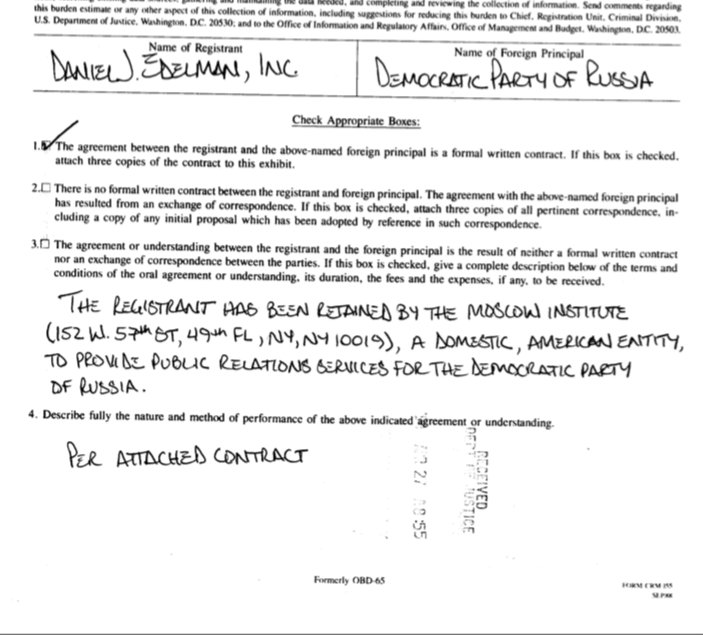 this burden estimate or any other aspect of this collection of information, including suggestions for reducing this burden to Chief, Registration Unit, Criminal Division,
U.S. Department of Justice, Washington, D.C. 20530; and to the Office of Information and Regulatory Affairs, Office of Management and Budget, Washington, D.C. 20503.
Name of Registrant
DANIEL J. EDELMAN, INC.
Name of Foreign Principal
DEMOCRATIC PARTY OF RUSSIA
Check Appropriate Boxes:
1. The agreement between the registrant and the above-named foreign principal is a formal written contract. If this box is checked,
attach three copies of the contract to this exhibit.
2.☐ There is no formal written contract between the registrant and foreign principal. The agreement with the above-named foreign principal
has resulted from an exchange of correspondence. If this box is checked, attach three copies of all pertinent correspondence, in-
cluding a copy of any initial proposal which has been adopted by reference in such correspondence.
3.☐ The agreement or understanding between the registrant and the foreign principal is the result of neither a formal written contract
nor an exchange of correspondence between the parties. If this box is checked, give a complete description below of the terms and
conditions of the oral agreement or understanding, its duration, the fees and the expenses, if any, to be received.
THE REGISTRANT HAS BEEN RETAINED BY THE MOSCOW INSTITUTE
(152 W. 57th ST, 49th FL, NY, NY 10019), A DOMESTIC, AMERICAN ENTITY,
TO PROVIDE PUBLIC RELATIONS SERVICES FOR THE DEMOCRATIC PARTY
OF RUSSIA.
4. Describe fully the nature and method of performance of the above indicated agreement or understanding.
PER ATTACHED CONTRACT
RECEIVED
DEPT OF JUSTICE
27
55
Formerly OBD-65
FORM CRM-155